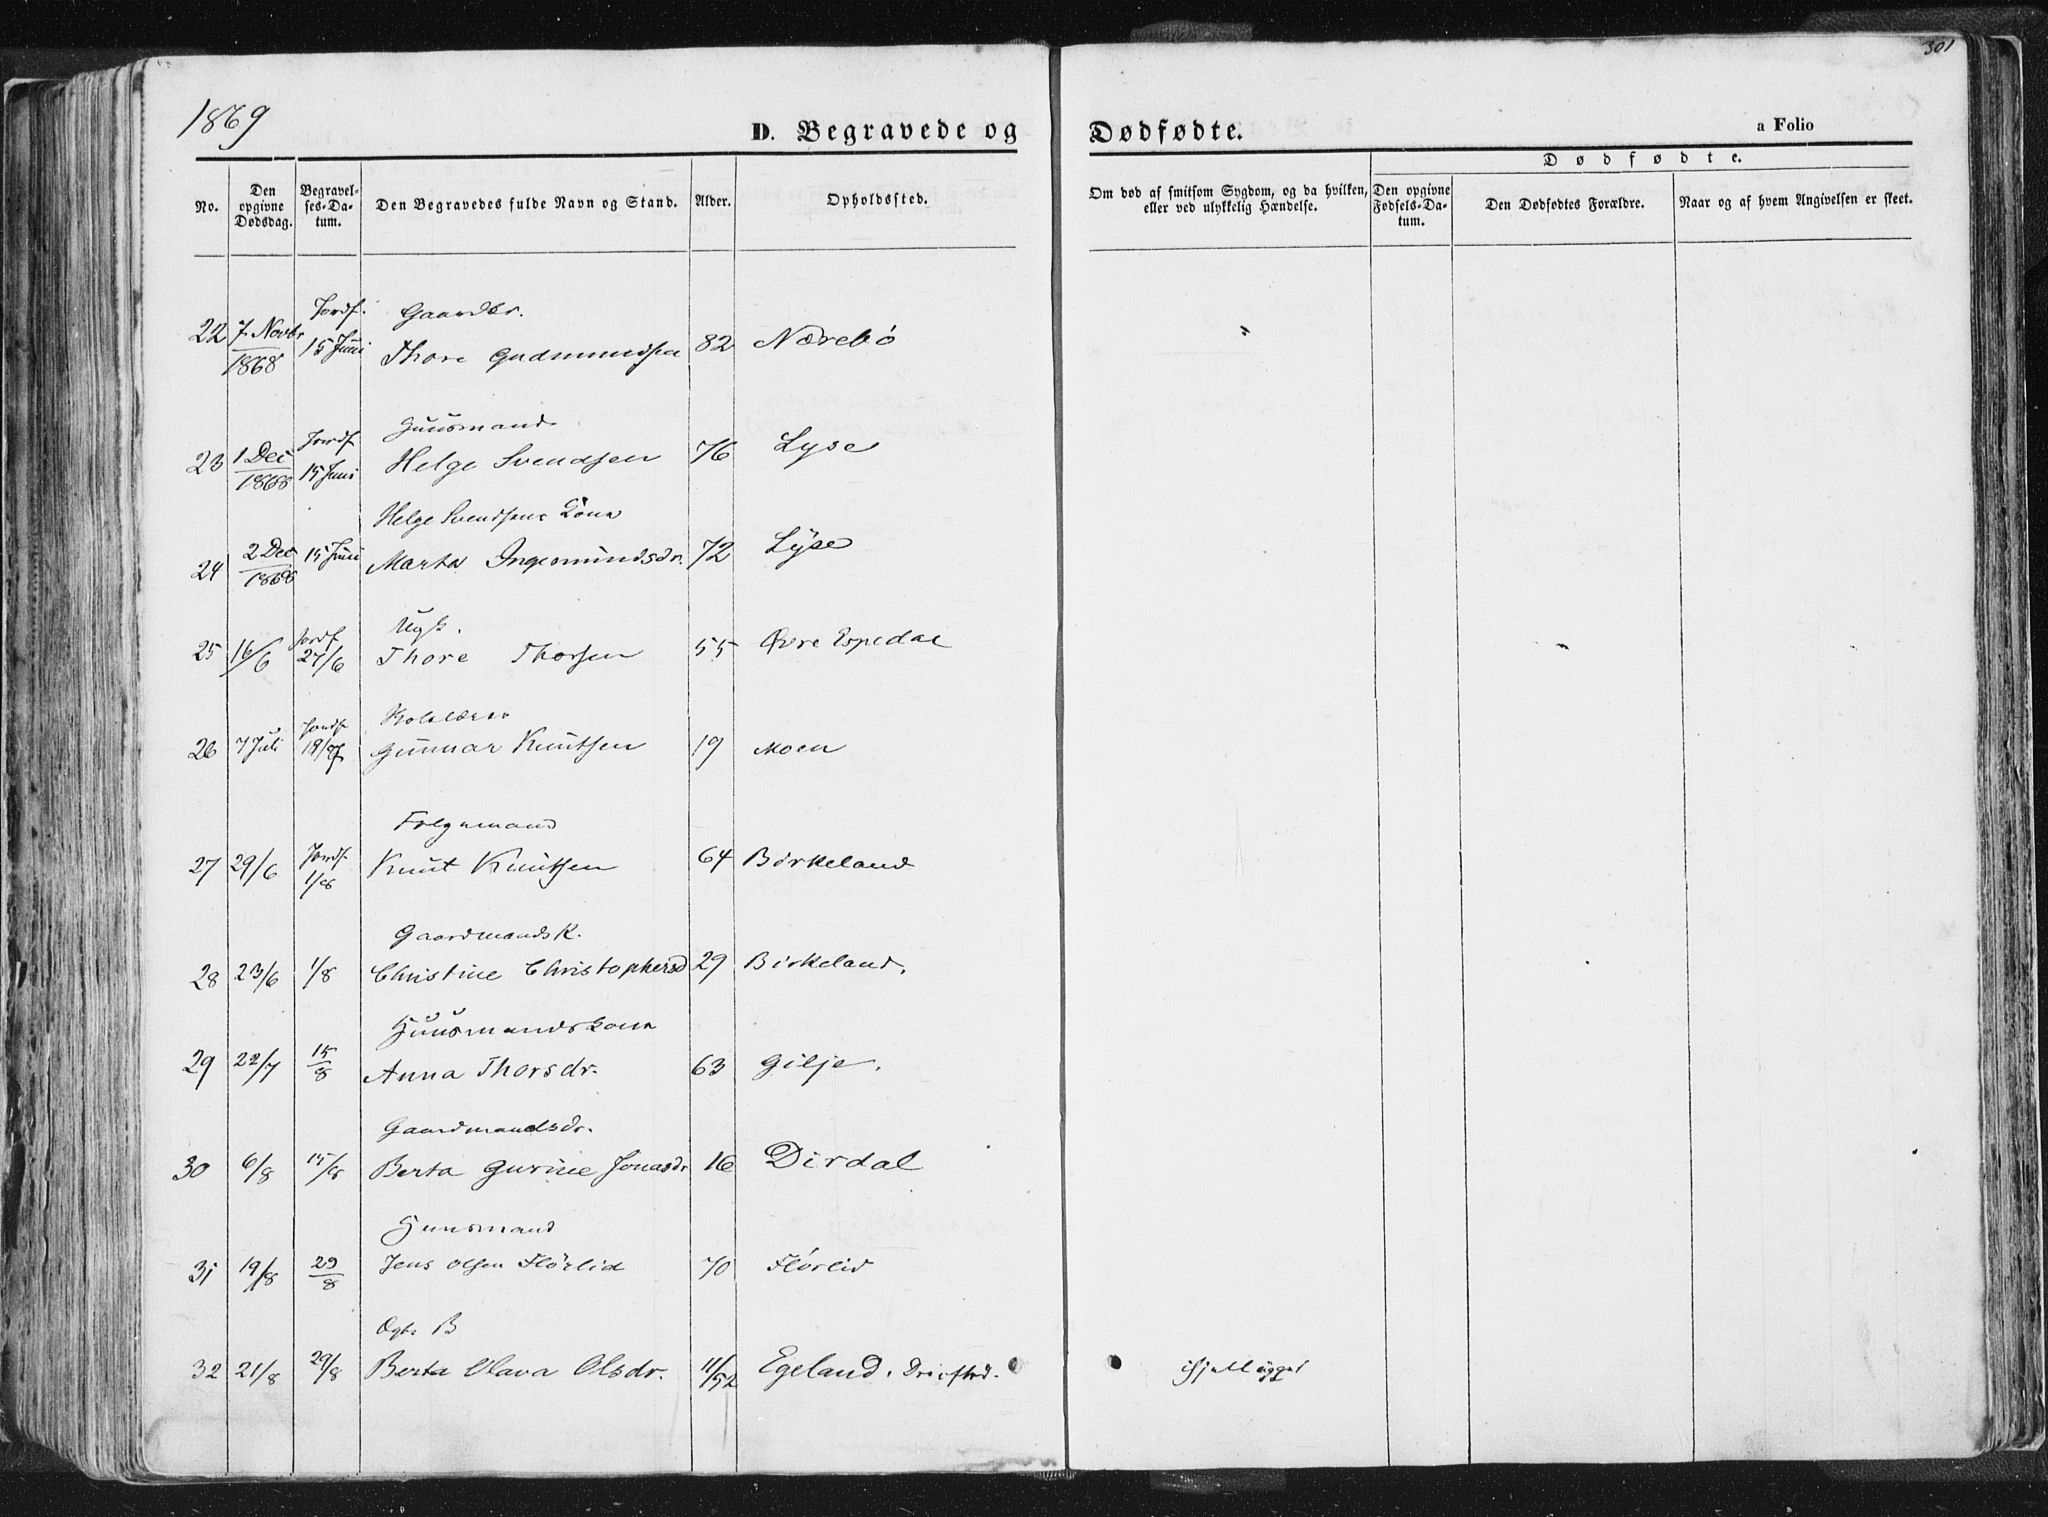 301
1869
D. Begravede og Dødfødte.
a Folio
No.
Den opgivne Dødsdag.
Begravelses-Datum.
Den Begravedes fulde Navn og Stand.
Alder.
Opholdssted.
Om død af smitsom Sygdom, og da hvilken, eller ved ulykkelig Hændelse.
Dødfødte.
Den opgivne Fødsels-Datum.
Den Dødfødtes Forældre.
Naar og af hvem Angivelsen er skeet.
Jordf. Gaardbr.
22 7 Novbr 1868 15 Juni Thore Gudmundsen 82 Nærebø
Jordf Huusmand
23 1 Dec 1868 15 Juni Helge Svendsen 76 Lyse
Helge Svendsens Kone
24 2 Dec 1868 15 Juni Marta Ingemundsdr. 72 Lyse
Jordf Ugk.
25 16/6 27/6 Thore Thorsen 55 Øvre Espedal
Jordf
26 7 Juli 18/7 Gunnar Knutsen 19 Moen
Jordf Folgemand
27 29/6 1/8 Knut Knutsen 64 Birkeland
Gaardmandsk.
28 23/6 1/8 Christine Christophersd 29 Birkeland.
Huusmandskone
29 22/7 15/8 Anna Thorsdr. 63 Gilje.
Gaardmandsdr.
30 6/8 15/8 Berta Gurine Jonasdr 16 Dirdal
Huusmand
31 19/8 29/8 Jens Olsen Flörlid 70 Flörlid
Ægte B
32 21/8 29/8 Berta Olava Olsdr. 11/52 Egeland.